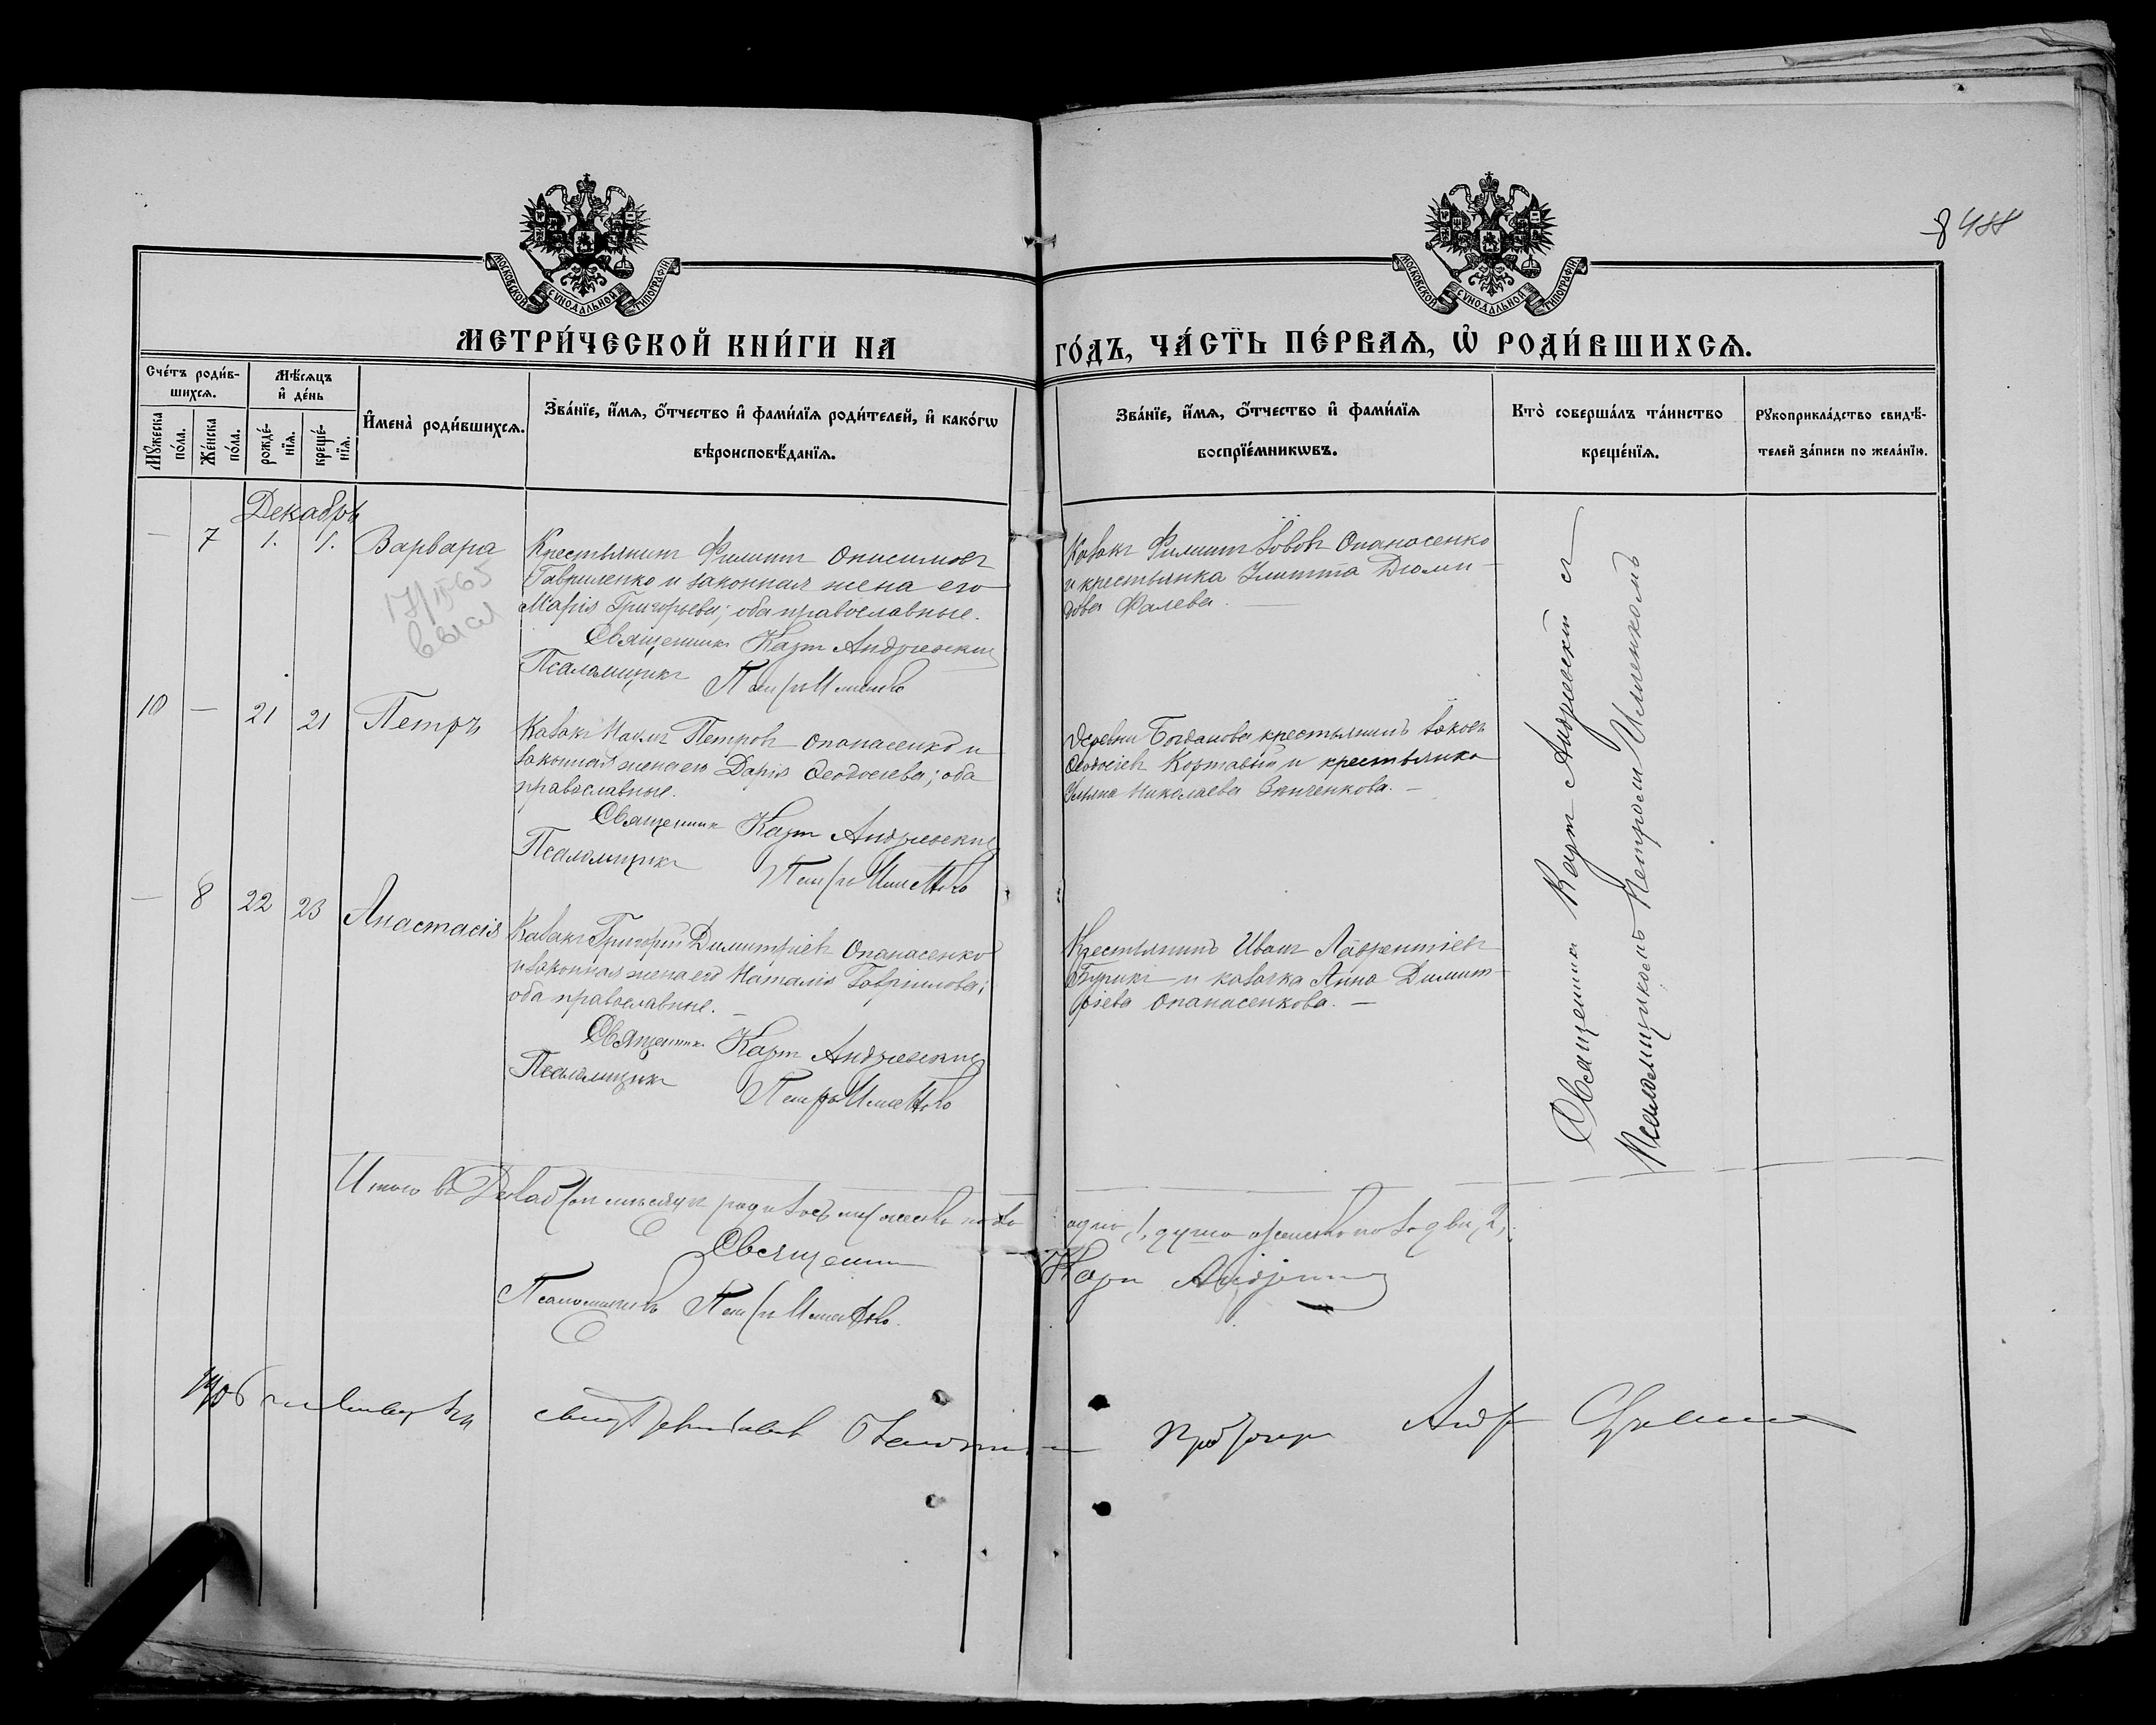 8 488
МОСКОВСКОЙ СѴНОДАЛЬНОЙ ТИПОГРАФІИ
МОСКОВСКОЙ СѴНОДАЛЬНОЙ ТИПОГРАФІИ
МЕТРИ́ЧЕСКОЙ КНИ́ГИ НА
ГО́ДЪ, ЧА́СТЬ ПЕ́РВАЯ, Ѡ҆ РОДИ́ВШИХСЯ.
Сче́тъ роди́в-
шихсѧ.
Мѣ́сѧцъ
и҆ де́нь
Мꙋ́жеска
по́ла.
Же́нска
по́ла.
рожде́-
нїѧ.
креще́-
нїѧ.
И҆мена̀ роди́вшихсѧ.
Зва́нїе, и҆́мѧ, ѻ҆́тчество и҆ фами́лїѧ роди́телей, и҆ како́гѡ
вѣроисповѣ́данїѧ.
Зва́нїе, и҆́мѧ, ѻ҆́тчество и҆ фами́лїѧ
воспрїе́мникѡвъ.
Кто̀ соверша́лъ та́инство
креще́нїѧ.
Рꙋкоприкла́дство свидѣ́-
телей за́писи по жела́нїю.
Декабрь
— 7 1. 1. Варвара
Крестьянинъ Филиппъ Онисимовъ
Гавриленко и законная жена его
Марія Григорьева; оба православные.
Священникъ Карпъ Андріевскій
Псаломщикъ Петръ
Казакъ Филиппъ Іововъ Опанасенко
и крестьянка Улитта Дюми-
дова Фалева.
17/ 65
10 — 21 21 Петръ
Казакъ Наумъ Петровъ Опанасенко и
законная жена его Дарія Ѳеодосіева; оба
православные.
Священникъ Карпъ Андріевскій
Псаломщикъ Петръ
Деревни Богдановки крестьянинъ Іаковъ
Ѳеодосіевъ Кортавый и крестьянка
Ульяна Николаева Зинченкова. —
— 8 22 23 Анастасія
Казакъ Григорій Димитріевъ Опанасенко
и законная жена его Наталія Гавріилова;
оба православные. —
Священникъ Карпъ Андріевскій
Псаломщикъ Петръ
Крестьянинъ Иванъ Лаврентіевъ
Бурикъ и казачка Анна Димит-
ріева Опанасенкова. —
Священникъ Карпъ Андріевскій съ
Псаломщикомъ Петромъ
Итого въ Декабрѣ мѣсяцѣ родилось мужеска пола
одна, 1, душа женска пола двѣ, 2,.
Священникъ
Карпъ Андріевскій
Псаломщикъ Петръ